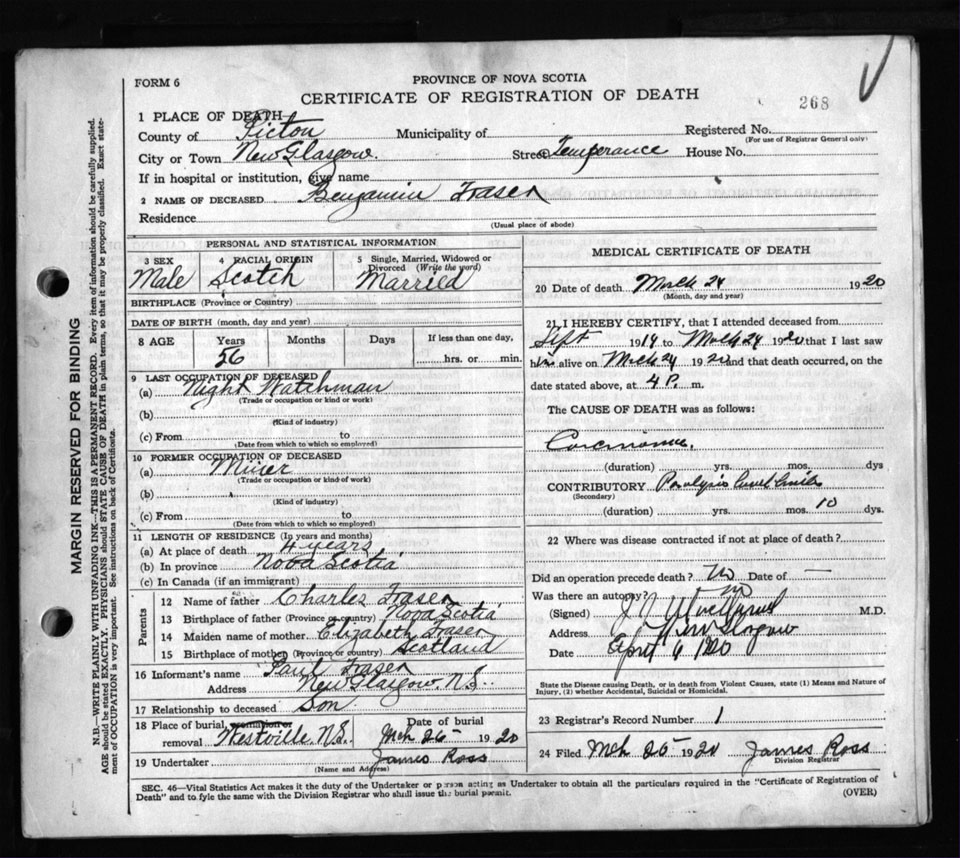 FORM 6
PROVINCE OF NOVA SCOTIA
CERTIFICATE OF REGISTRATION OF DEATH
268
1 PLACE OF DEATH
County of Pictou Municipality of Registered No.
(For use of Registrar General only)
City or Town New Glasgow. Street Temperance House No.
If in hospital or institution, give name
2 NAME OF DECEASED Benjamin Fraser
Residence
(Usual place of abode)
PERSONAL AND STATISTICAL INFORMATION
3 SEX 4 RACIAL ORIGIN 5 Single, Married, Widowed or Divorced (Write the word)
Male Scotch Married
BIRTHPLACE (Province or Country)
DATE OF BIRTH (month, day and year)
8 AGE Years Months Days If less than one day,
56 hrs. or min.
9 LAST OCCUPATION OF DECEASED
(a) Night Watchman
(Trade or occupation or kind or work)
(b)
(Kind of industry)
(c) From to
(Date from which to which so employed)
10 FORMER OCCUPATION OF DECEASED
(a) Miner
(Trade or occupation or kind of work)
(b)
(Kind of industry)
(c) From to
(Date from which to which so employed)
11 LENGTH OF RESIDENCE (In years and months)
(a) At place of death 4 years
(b) In province Nova Scotia
(c) In Canada (if an immigrant)
Parents
12 Name of father Charles Fraser
13 Birthplace of father (Province or country) Nova Scotia
14 Maiden name of mother Elizabeth Fraser
15 Birthplace of mother (Province or country) Scotland
16 Informant's name Paul Fraser
Address New Glasgow N.S.
17 Relationship to deceased Son
18 Place of burial, cremation or removal Westville N.S. Date of burial Mch 26 1920
19 Undertaker James Ross
(Name and Address)
MEDICAL CERTIFICATE OF DEATH
20 Date of death March 24 1920
(Month, day and year)
21 I HEREBY CERTIFY, that I attended deceased from
Sept 1919 to March 24 1920 that I last saw
him alive on March 24 1920 and that death occurred, on the
date stated above, at 4 P. m.
The CAUSE OF DEATH was as follows:
(duration) yrs. mos. dys
CONTRIBUTORY Paralysis
(Secondary)
(duration) yrs. mos. 10 dys.
22 Where was disease contracted if not at place of death?
Did an operation precede death? No Date of —
Was there an autopsy? no
(Signed) M.D.
Address New Glasgow
Date April 6 1920
State the Disease causing Death, or in death from Violent Causes, state (1) Means and Nature of
Injury, (2) whether Accidental, Suicidal or Homicidal.
23 Registrar's Record Number 1
24 Filed Mch 25 1920 James Ross
Division Registrar
SEC. 46—Vital Statistics Act makes it the duty of the Undertaker or person acting as Undertaker to obtain all the particulars required in the "Certificate of Registration of
Death" and to fyle the same with the Division Registrar who shall issue the burial permit. (OVER)
MARGIN RESERVED FOR BINDING
N.B.—WRITE PLAINLY WITH UNFADING INK—THIS IS A PERMANENT RECORD. Every item of information should be carefully supplied.
AGE should be stated EXACTLY. PHYSICIANS should STATE CAUSE OF DEATH in plain terms, so that it may be properly classified. Exact statement
of OCCUPATION is very important. See instructions on back of Certificate.